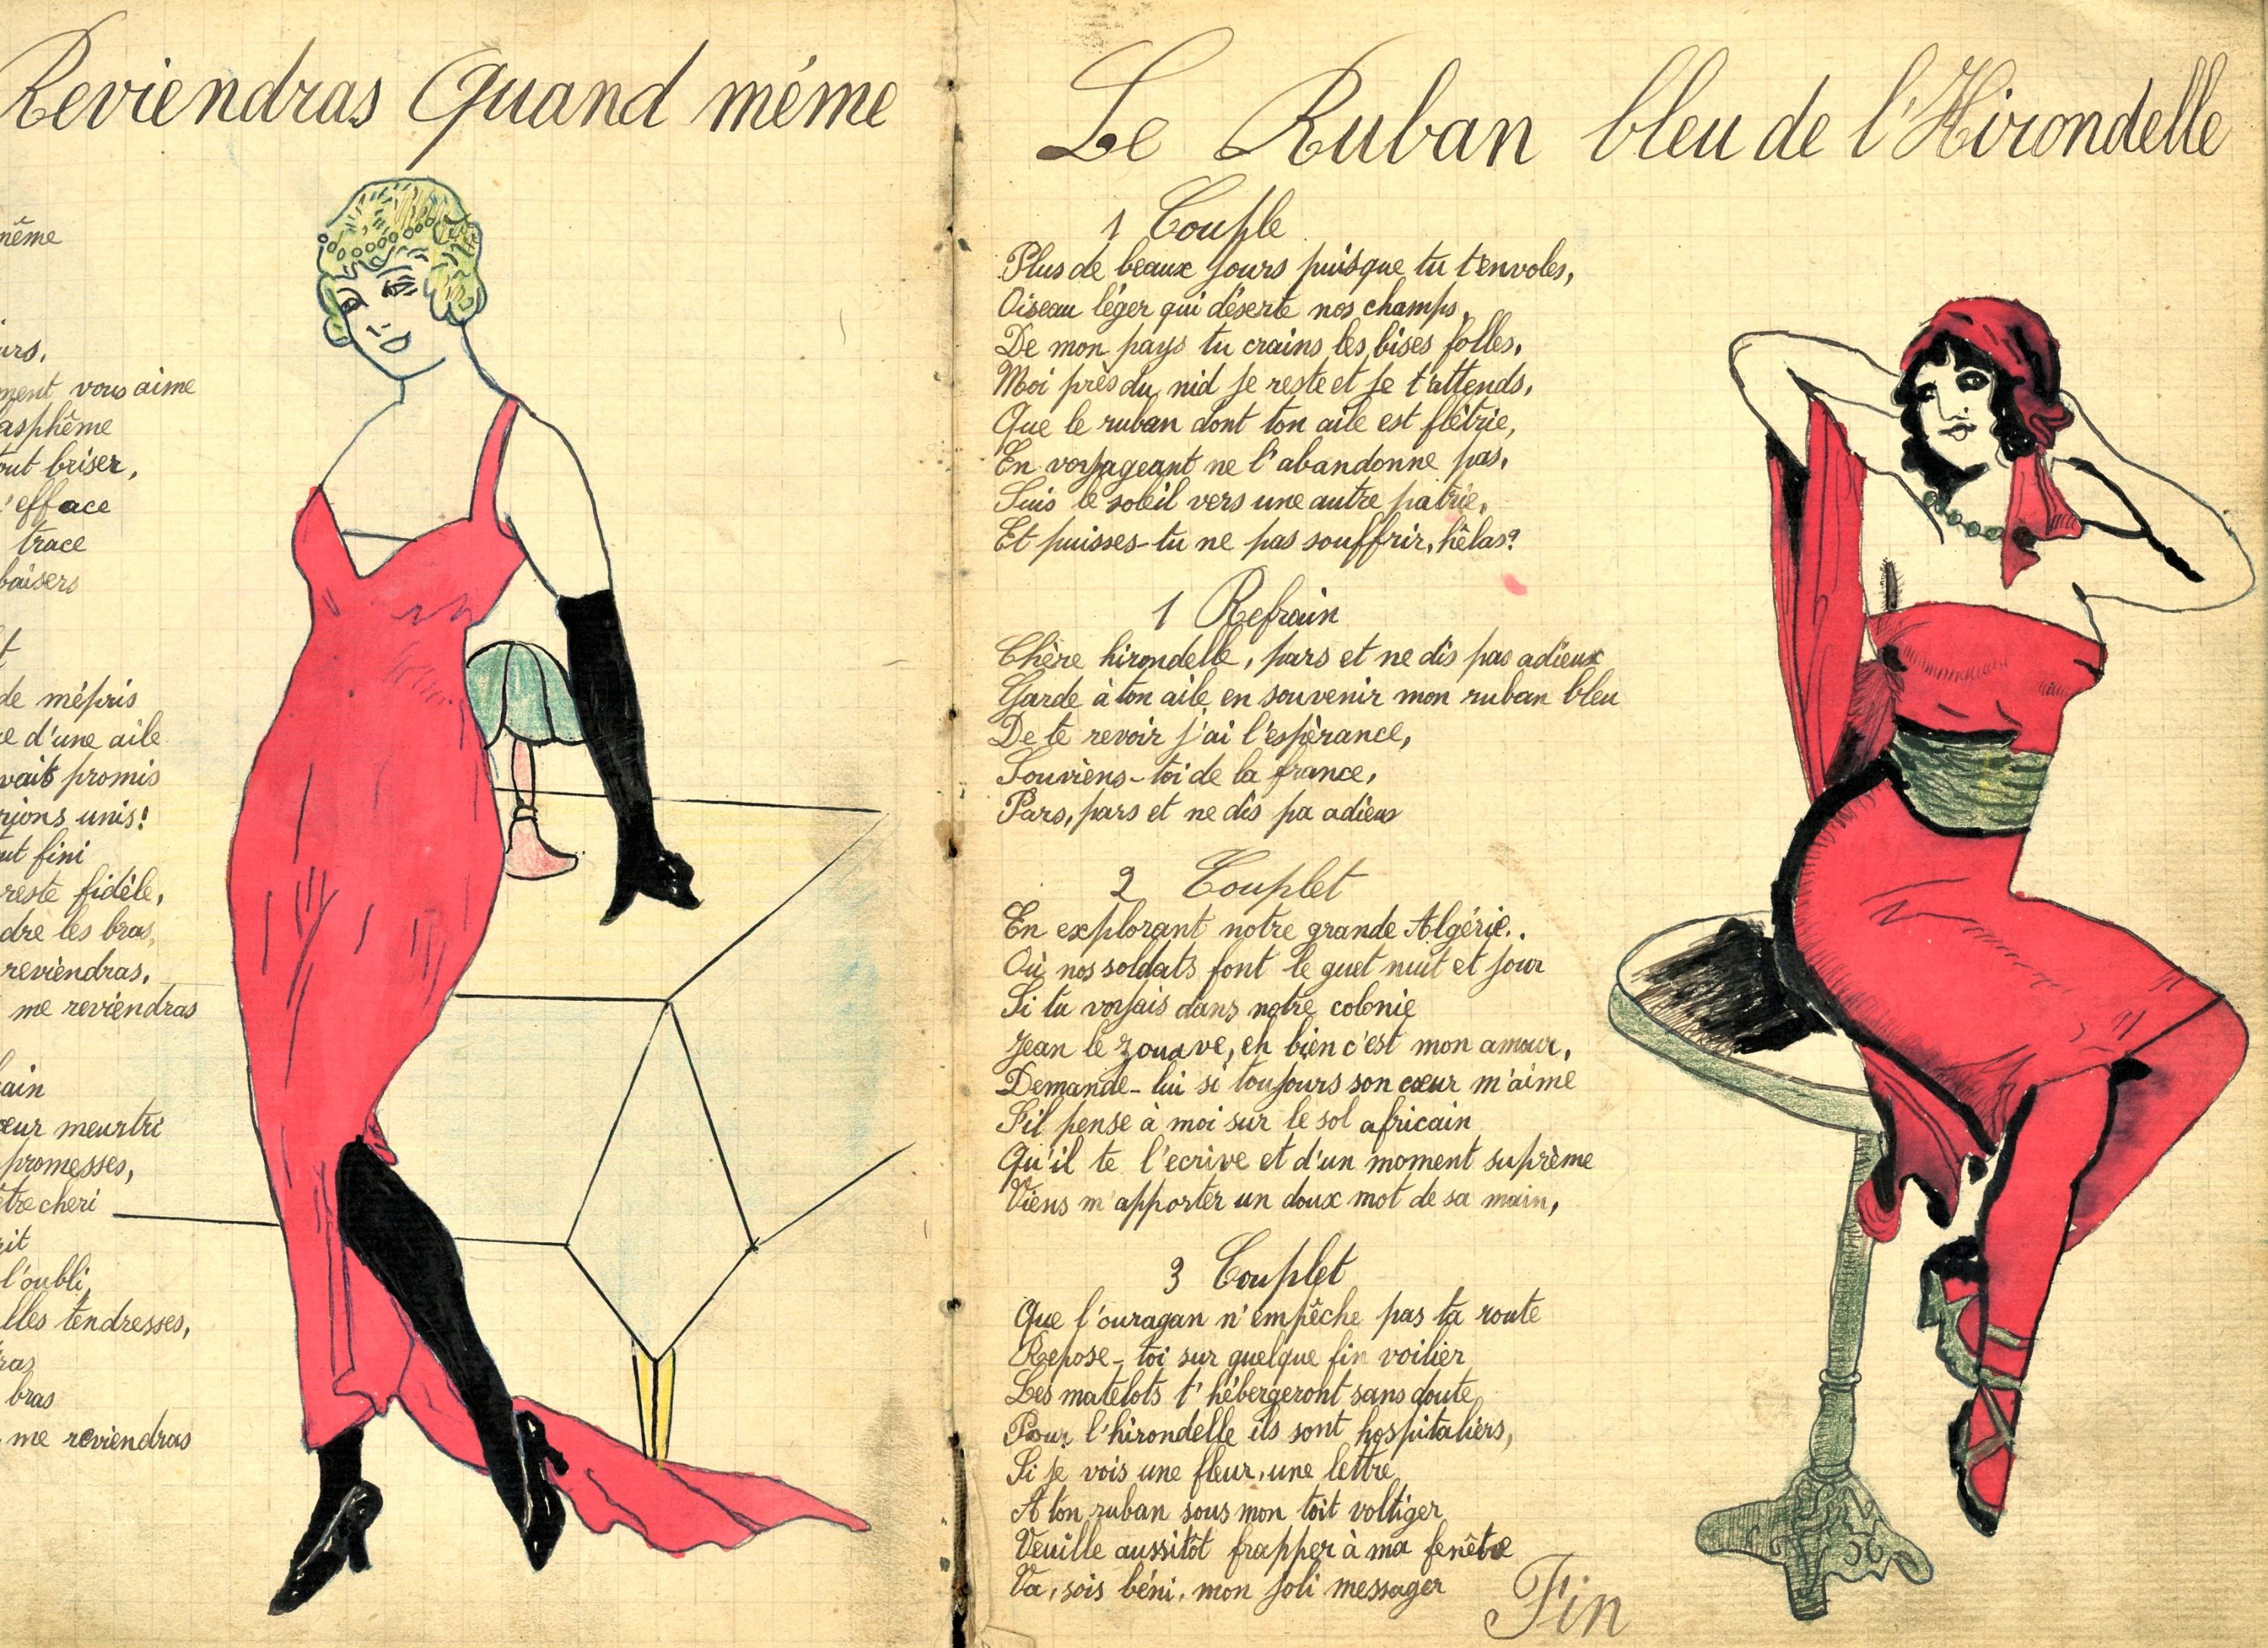 Reviendras Quand même
même
urs,
ment vous aime
asphême
out briser,
'efface
trace
baisers
t
de mépris
e d'une aile
vait promis
rions unis!
ut fini
reste fidèle,
dre les bras,
reviendras,
me reviendras
ain
œur meurtri
promesses,
être cheri
rit
l'oubli,
lles tendresses,
ras
bras
me reviendras
Le Ruban bleu de l'Hirondelle
1 Couple
Plus de beaux jours puisque tu t'envoles,
Oiseau léger qui déserte nos champs,
De mon pays tu crains les bises folles,
Moi près du nid je reste et je t'attends,
Que le ruban dont ton aile est flêtrie,
En voyageant ne l'abandonne pas,
Suis le soleil vers une autre patrie,
Et puisses-tu ne pas souffrir, hélas?
1 Refrain
Chère hirondelle, pars et ne dis pas adieux
Garde à ton aile en souvenir mon ruban bleu
De te revoir j'ai l'espèrance,
Souviens-toi de la france,
Pars, pars et ne dis pa adieux
2 Couplet
En explorant notre grande Algérie..
Où nos soldats font le guet nuit et jour
Si tu voyais dans notre colonie
Jean le zouave, eh bien c'est mon amour,
Demande-lui si toujours son cœur m'aime
S'il pense à moi sur le sol africain
Qu'il te l'ecrive et d'un moment suprème
Viens m'apporter un doux mot de sa main,
3 Couplet
Que l'ouragan n'empêche pas ta route
Repose-toi sur quelque fin voilier
Les matelots t'hébergeront sans doute
Pour l'hirondelle ils sont hospitaliers,
Si je vois une fleur, une lettre
A ton ruban sous mon toit voltiger
Veuille aussitôt frapper à ma fenêtre
Va, sois béni, mon joli messager
Fin